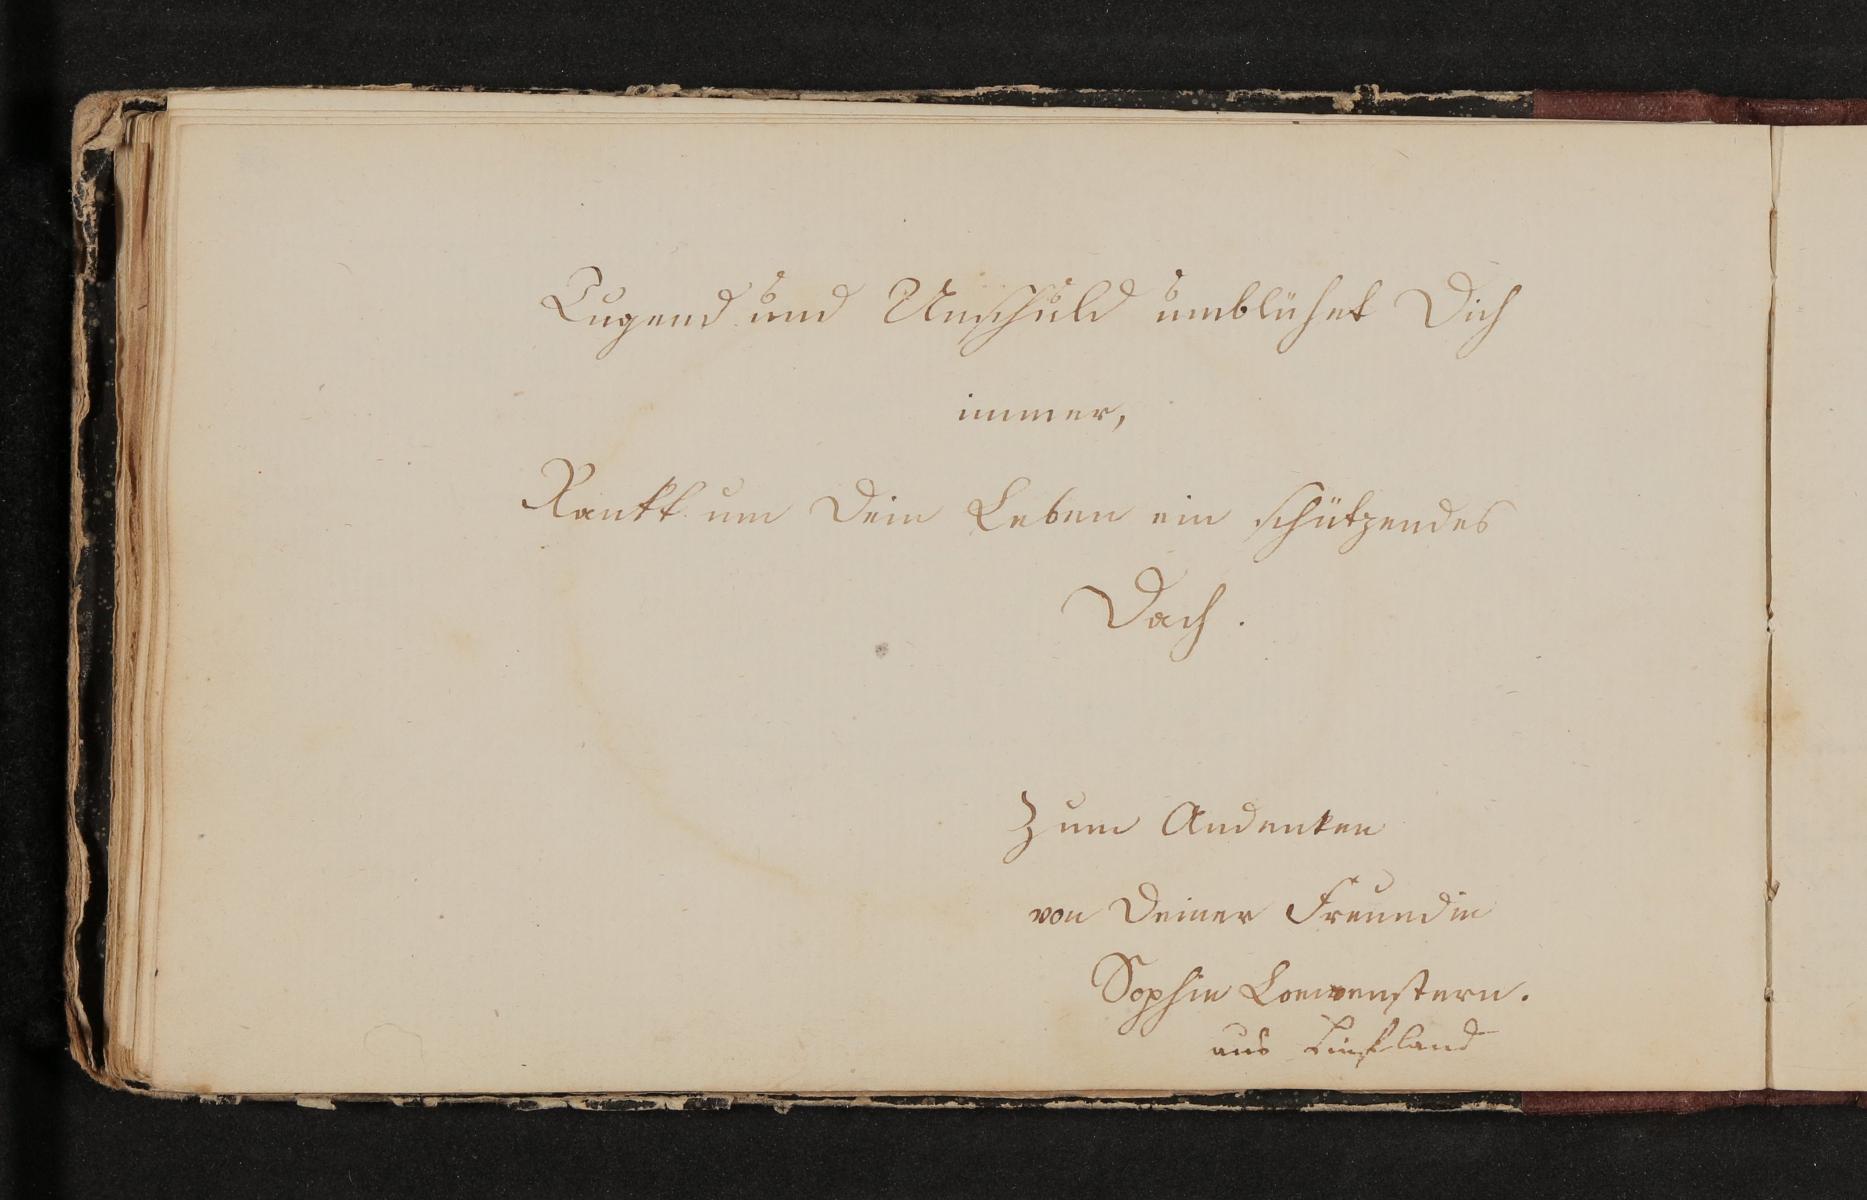 Tugend und Unschuld umblühet Dich
immer,
Rankt um Dein Leben ein schützendes
Dach.
Zum Andenken
von Deiner Freundin
Sophie Loewenstern.
aus Liefland